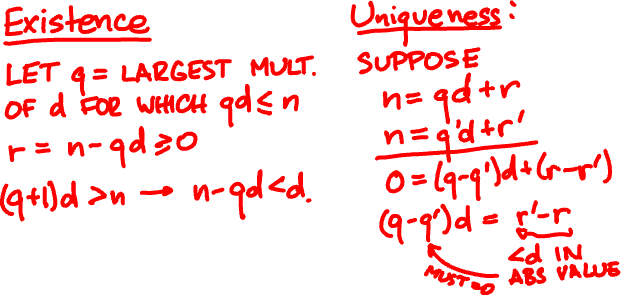 Existence
LET q = LARGEST MULT.
OF d FOR WHICH qd ≤ n
r = n - qd ≥ 0
(q+1)d > n → n-qd < d.
Uniqueness:
SUPPOSE
n = qd + r
n = q'd + r'
0 = (q-q')d + (r-r')
(q-q')d = r'-r
<d IN
ABS VALUE
MUST = 0